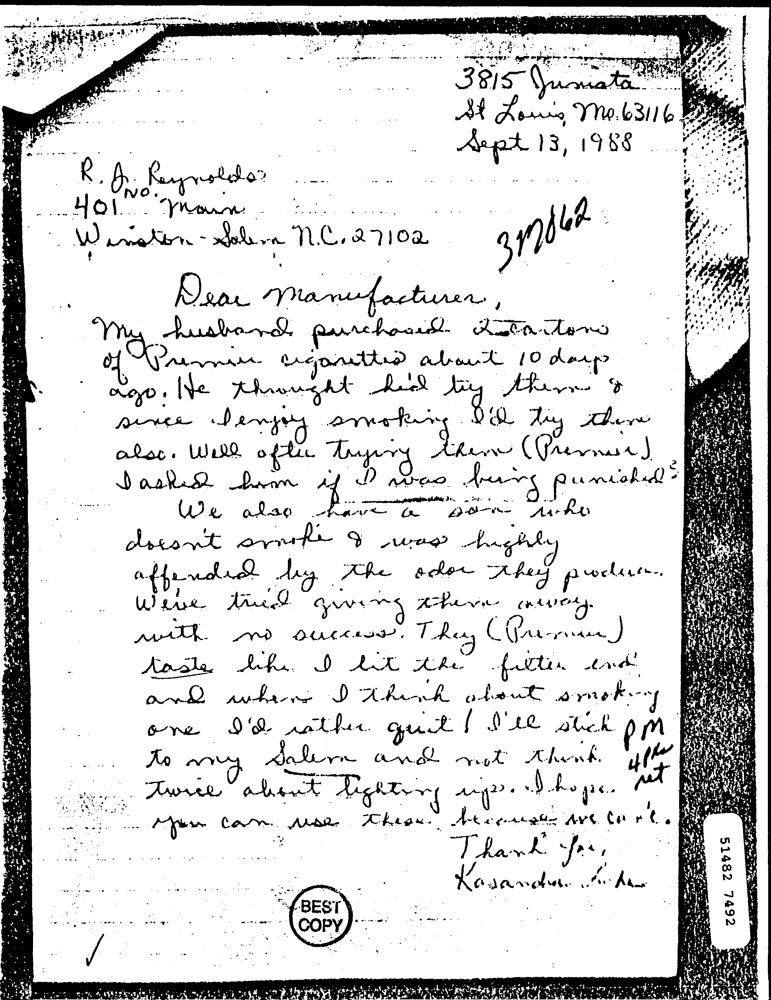 3815 Juniata
St Louis, Mo. 63116
Sept 13, 1988
R. J. Reynolds
401 No. Main
Winston-Salem N.C. 27102
317862
Dear Manufacturer,
My husband purchased 2 cartons
of Premier cigarettes about 10 days
ago. He throught he'd try them &
since I enjoy smoking I'd try them
also. Well after trying them (Premier)
I asked him if I was being punished?
We also have a son who
doesn't smoke & was highly
affended by the odor they produce.
We've tried giving them away
with no success. They (Premier)
taste like I lit the filter end
and when I think about smoking
one I'd rather quit! I'll stick
to my Salem and not think
twice about lighting up. I hope
you can use these because we can't.
Thank You,
Kasandra
PM
4 pks
ret
BEST
COPY
51482 7492